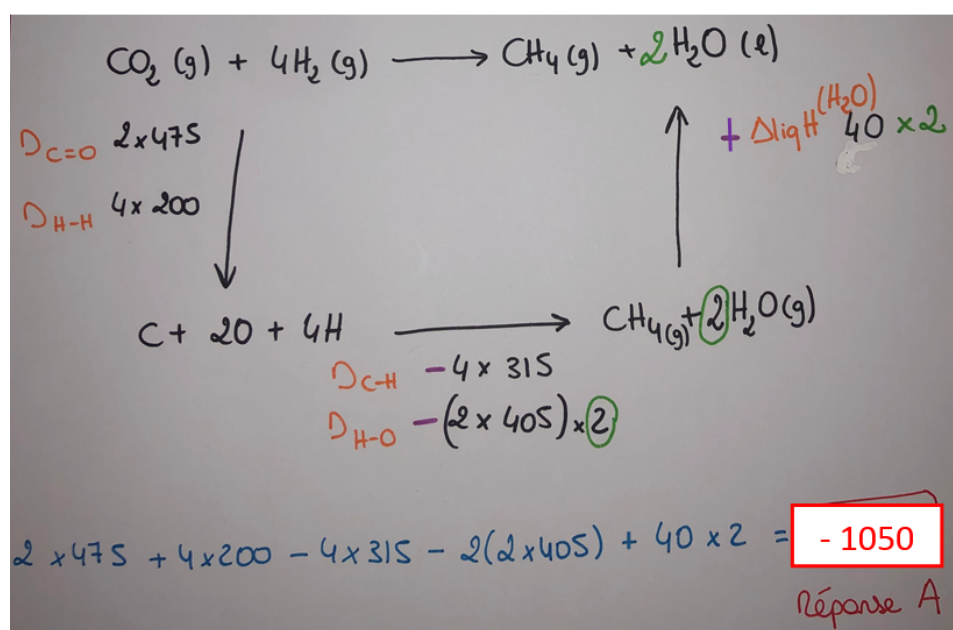 CO₂ (g) + 4H₂ (g) ⟶ CH₄ (g) + 2H₂O (l)
D_C=O 2 x 475
D_H-H 4 x 200
+ ΔliqH (H₂O) 40 x 2
C + 2O + 4H ⟶ CH₄(g) + 2H₂O(g)
D_C-H - 4 x 315
D_H-O - (2 x 405) x 2
2 x 475 + 4 x 200 - 4 x 315 - 2(2 x 405) + 40 x 2 = - 1050
Réponse A